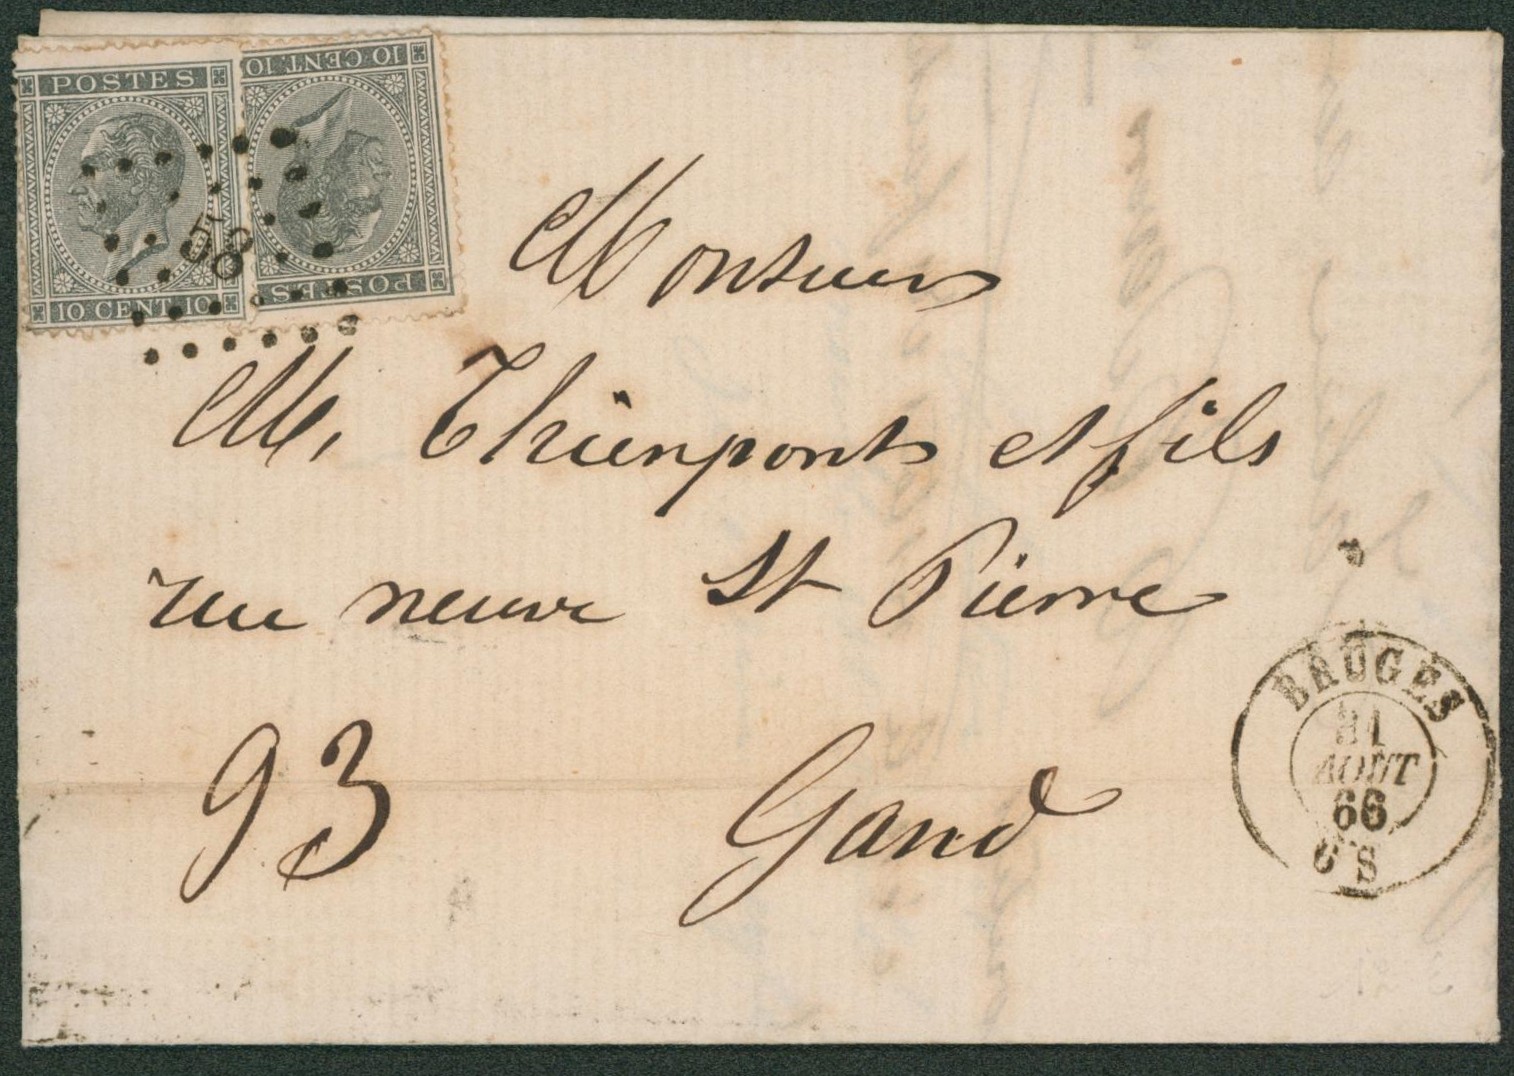 POSTES
10 CENT. 10
10 CENT. 10
POSTES
58
Monsieur
M. Thienpont et fils
rue neuve St Pierre
93
Gand
BRUGES
31
AOUT
66
6 S